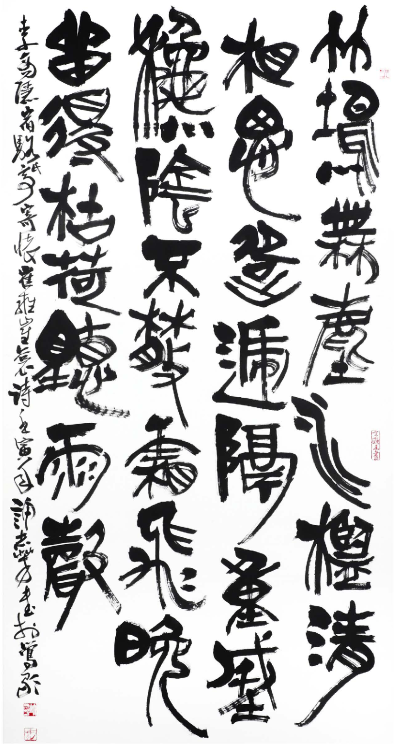 竹塢無塵水檻清
相思迢遞隔重城
秋陰不散霜飛晚
留得枯荷聽雨聲
李商隱宿駱氏亭寄懷崔雍崔袞詩壬寅年